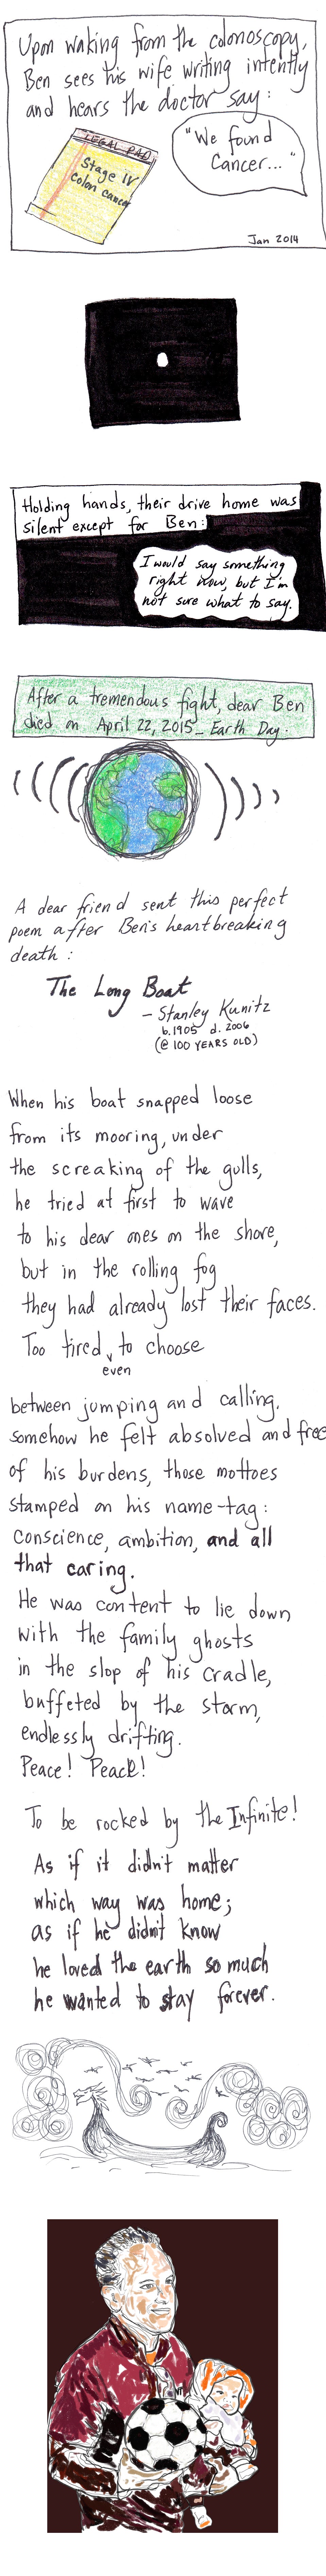 Upon waking from the colonoscopy,
Ben sees his wife writing intently
and hears the doctor say:
LEGAL PAD
Stage IV
colon cancer
"We found
Cancer..."
Jan 2014
Holding hands, their drive home was
silent except for Ben:
I would say something
right now, but I'm
not sure what to say.
After a tremendous fight, dear Ben
died on April 22, 2015 - Earth Day.
A dear friend sent this perfect
poem after Ben's heartbreaking
death:
The Long Boat
- Stanley Kunitz
b. 1905 d. 2006
(@ 100 YEARS OLD)
When his boat snapped loose
from its mooring, under
the screaking of the gulls,
he tried at first to wave
to his dear ones on the shore,
but in the rolling fog
they had already lost their faces.
Too tired even to choose
between jumping and calling,
somehow he felt absolved and free
of his burdens, those mottoes
stamped on his name-tag:
conscience, ambition, and all
that caring.
He was content to lie down
with the family ghosts
in the slop of his cradle,
buffeted by the storm,
endlessly drifting.
Peace! Peace!
To be rocked by the Infinite!
As if it didn't matter
which way was home;
as if he didn't know
he loved the earth so much
he wanted to stay forever.